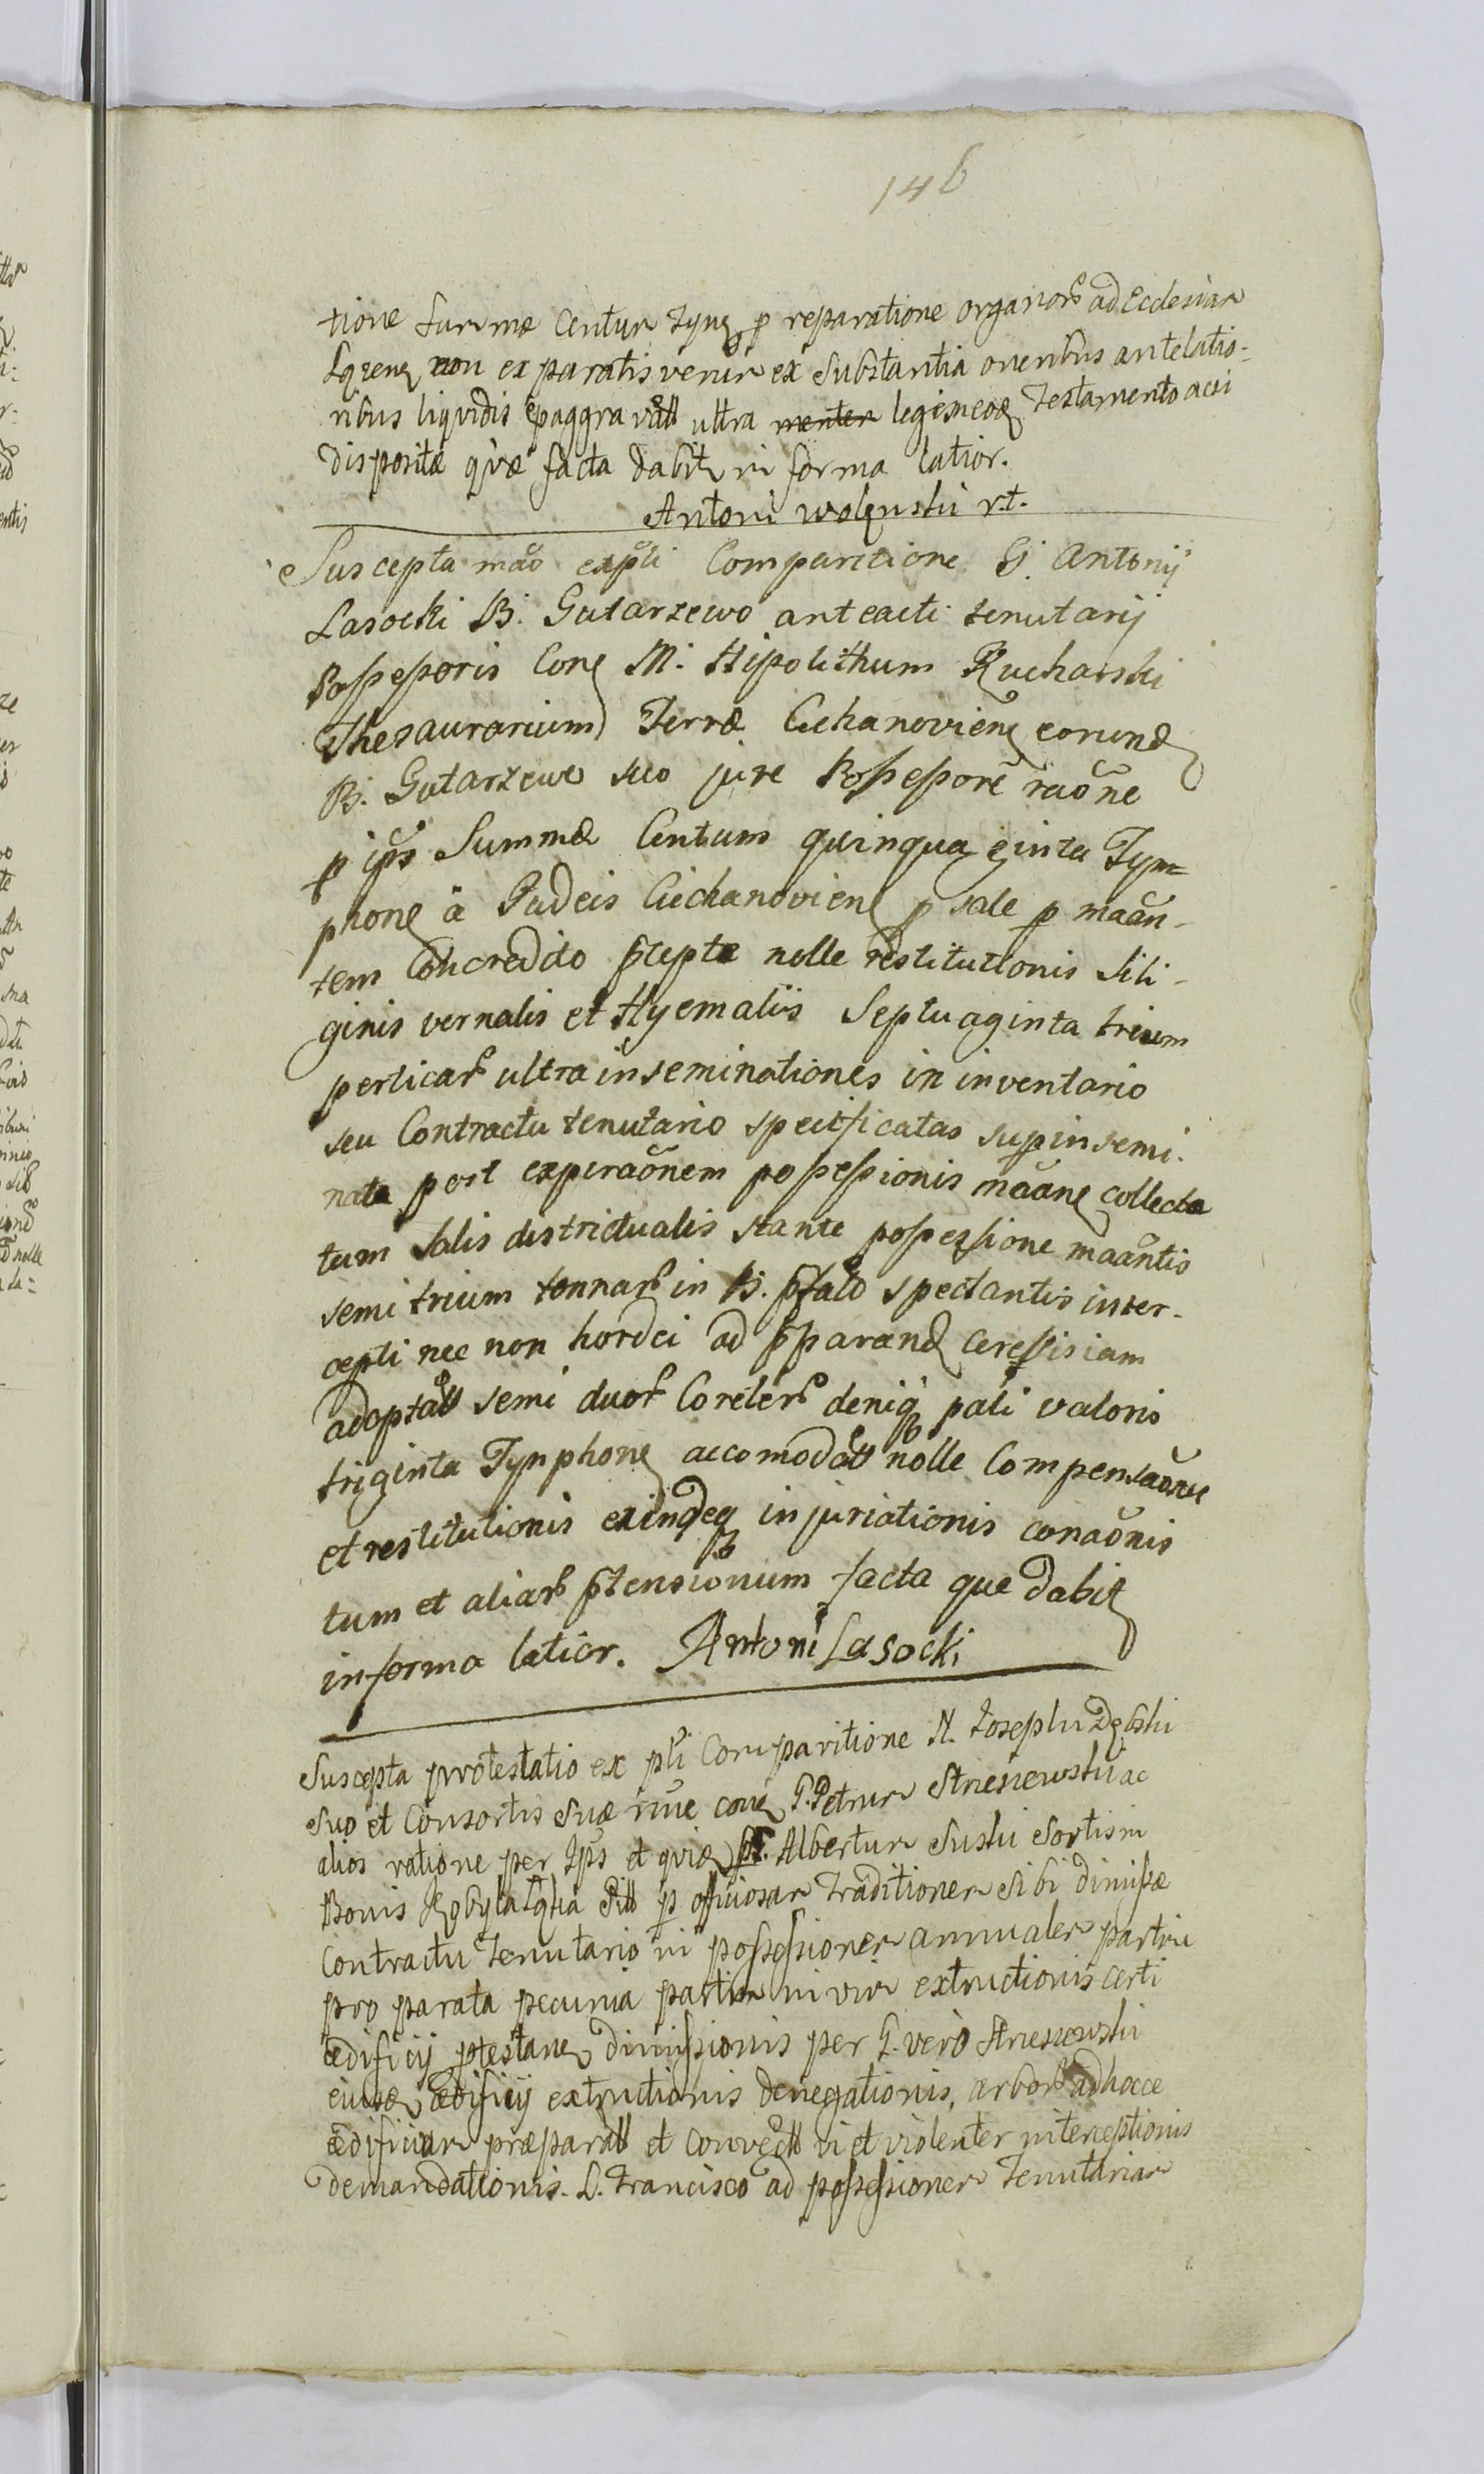 146
tione summæ Centum Tynꝫ p reparatione organorꝫ ad Ecclesiam
non ex paratis verum ex Substantia oneribus antelatio-
nibus liqvidis ultra legesneoꝫ Testamento acsi
dispositæ qvæ facta dabitꝫ in forma latior.
Antoni Wolęnski r.t.
Suscepta mãõ expłi Comparitione G. Antonij
Lasocki B. Gutarzewo anteacti tenutarij
Possessoris Conꝫ M. Hipolithum Rucharski
Thesaurarium Terræ Ciechanovienꝫ eorundꝫ
B. Gutarzewo suo jure Possessorẽ rãõne
p ip̃s Summæ Centum quinquaginta Tym=
phonꝫ à Judeis Ciechanovienꝫ p sale p maãn-
tem Concredito p̃cepta nolle restitutionis Sili-
ginis vernalis et Hyemalis Septuaginta trium
perticarꝫ ultra inseminationes in inventario
seu Contractu tenutario specificatas supinsemi-
nata post expiraõnem possessionis mããnꝫ collecta
tum Salis districtualis stante possessione maãntis
semi trium tonnarꝫ in B. p̃fatõ spectantis inter-
cepti nec non hordei ad p̃parandꝫ Cerevisiam
adoptatt semi duorꝫ Coreterꝫ deniqꝫ pali valoris
triginta Tynphonꝫ accomodatt nolle Compensaõnis
et restitutionis exindeqꝫ injuriationis conaõnis
tum et aliarꝫ p̃tensionum facta que dabitꝫ
in forma latior. Antoni Lasocki
Suscepta protestatio ex płi Comparitione N. Josephi Dębski
suo et Consortis suæ nñe conꝫ G. Petrum Strzeszewski ac
alios ratione per Ip̃s et qvidꝫ G. Albertum Suski Sortis in
Bonis p officiosam traditionem sibi dimissæ
Contractu Tenutario in possessionem annualem partim
pro parata pecunia partim in vim extructionis certi
ædificij p̃testanꝫ dimissionis per G. verò Strzeszewski
ejusdꝫ ædificij extructionis denegationis, arborꝫ ad hocce
ædificium præparatt et convectt vi et violenter interceptionis
demandationis L. Francisco ad possessionem Tenutariam